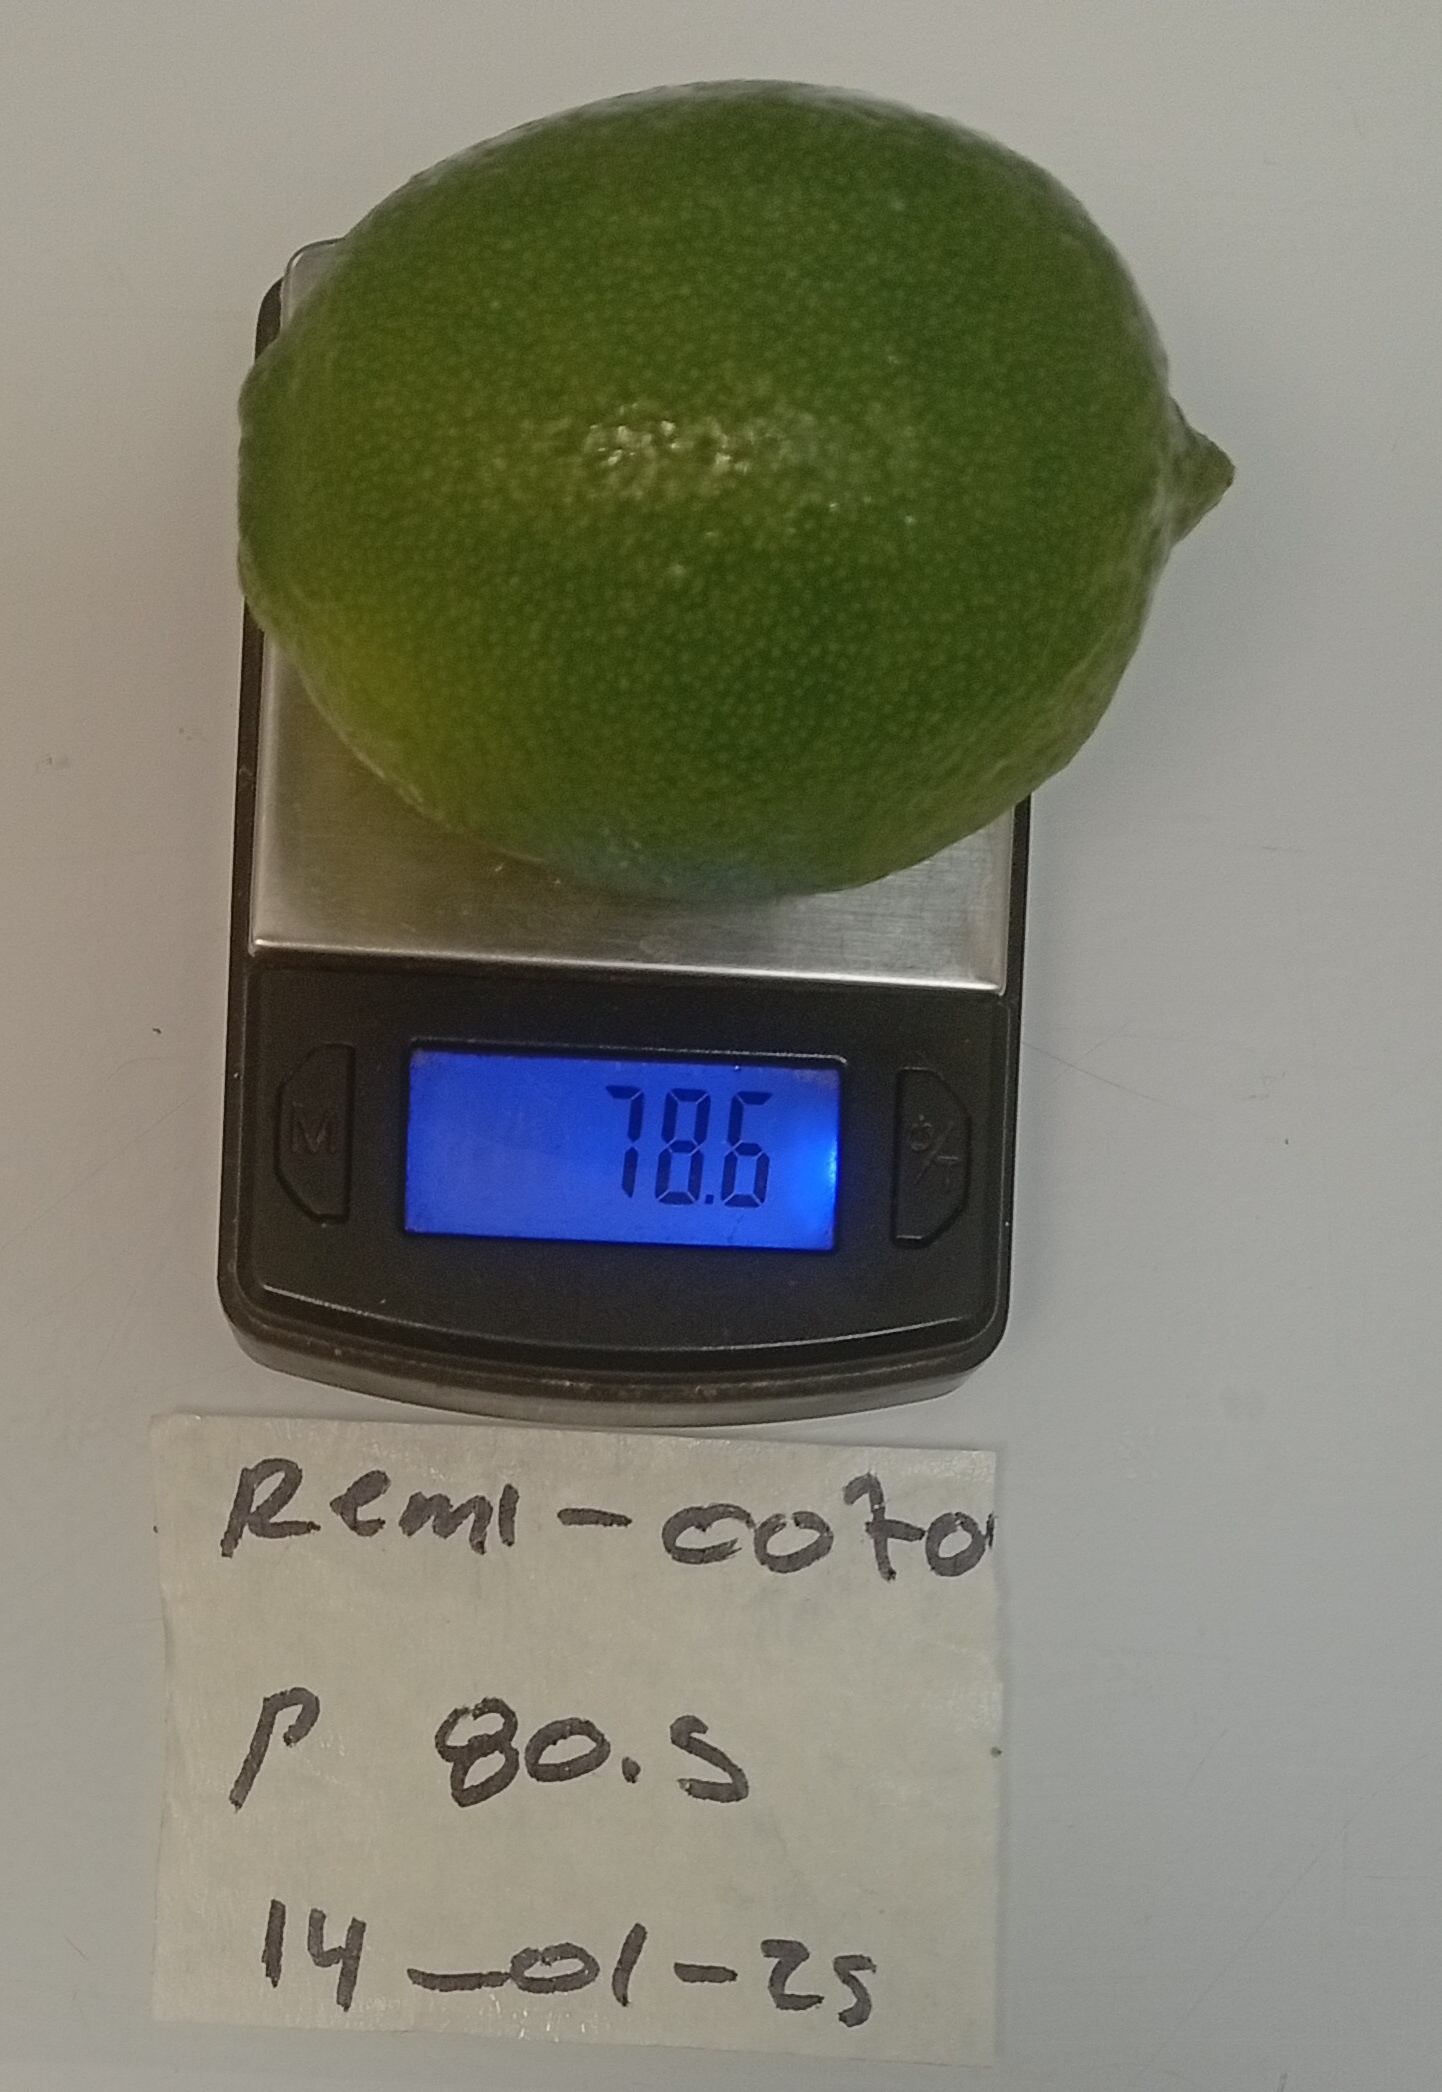 M
78.6
Remi-0070
P 80.5
14-01-25